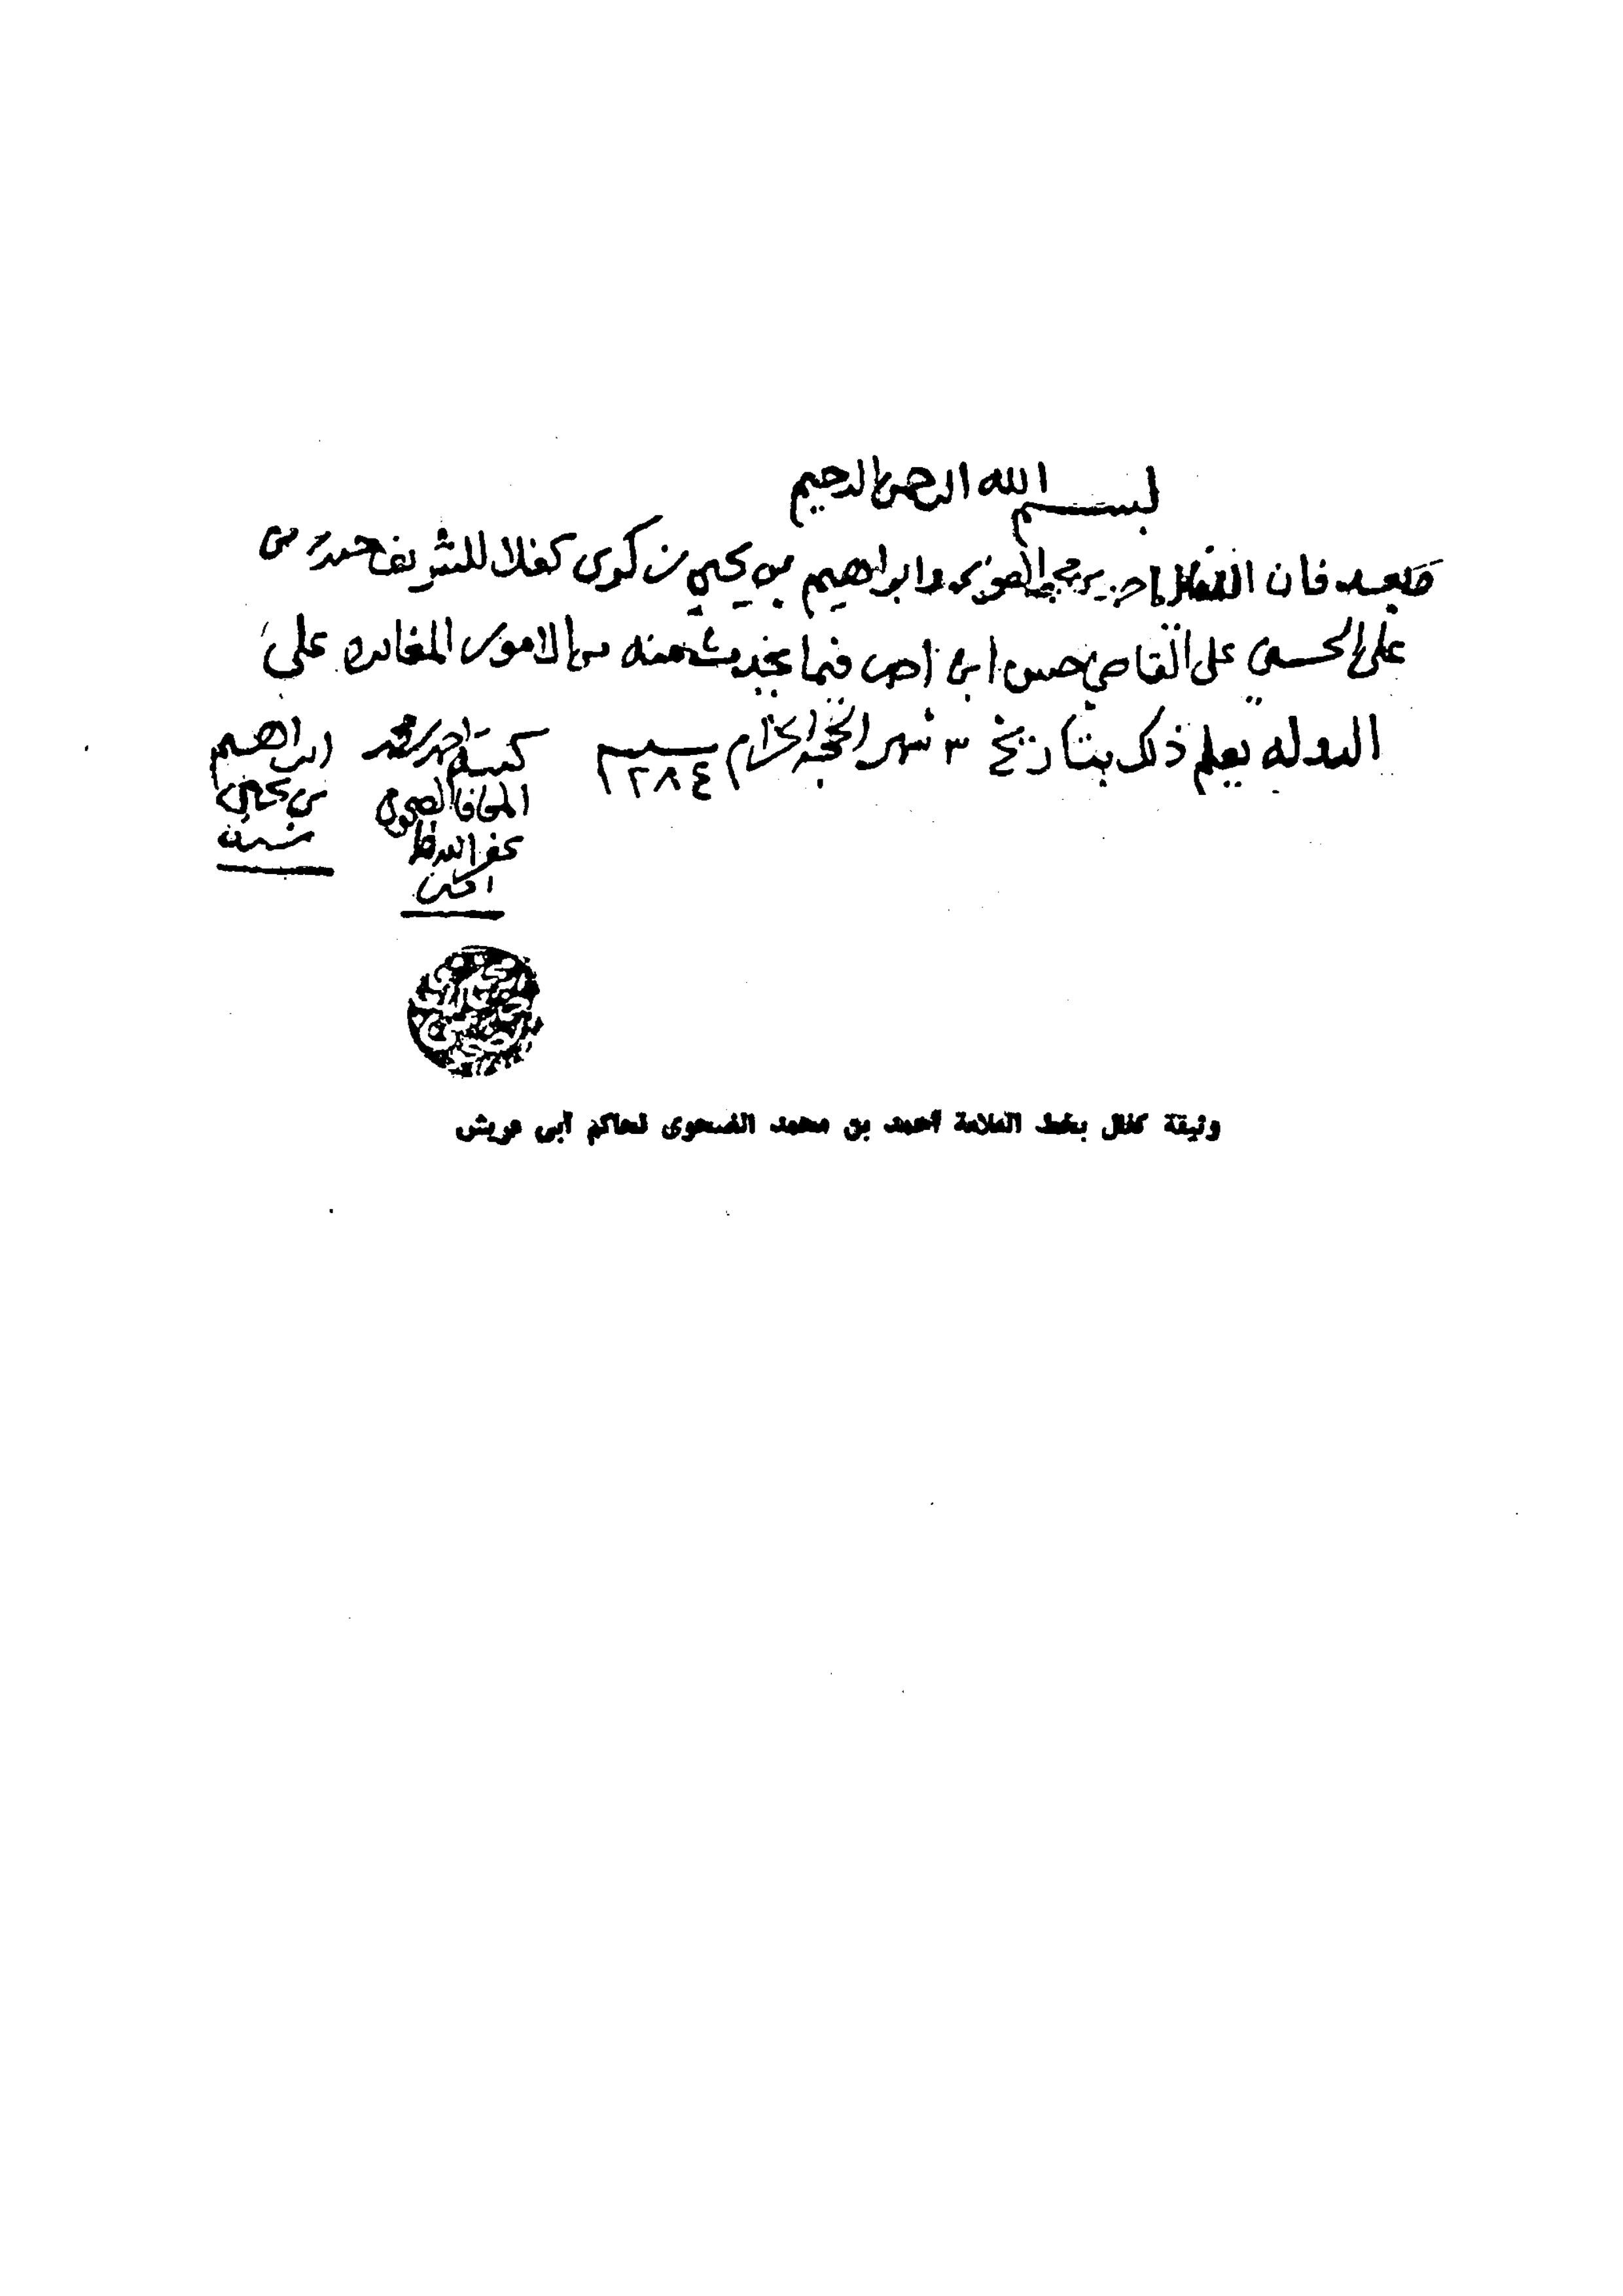 بسم الله الرحمن الرحيم
وبعد فان احمد بن محمد وابراهيم بن يحيى زكرى كفلا للشريف حيدر بن
علي الحسني على القاضي حسن ابن احمد فيما يحدث منه من الامور المغايره على
الدوله يعلم ذلك بتاريخ ٣ شهر الحجة الحرام سنة ١٢٨٤
كتبه احمد بن محمد
الحافظ الضحوي
غفر الله لهما
امين
ابراهيم
بن يحيى
وثيقة كفال بخط العلامة أحمد بن محمد الضحوى لحاكم أبى عريش